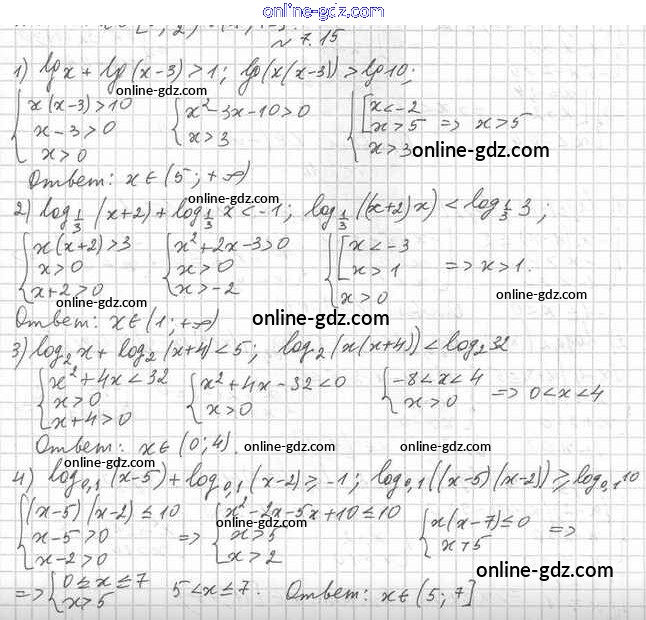 online-gdz.com
№ 7.15
1) lg x + lg (x-3) > 1; lg (x(x-3)) > lg 10;
online-gdz.com
{ x(x-3) > 10 { x² - 3x - 10 > 0 { [ x < -2
x - 3 > 0 x > 3 x > 5 => x > 5
x > 0 x > 3
online-gdz.com
Ответ: x ∈ (5; +∞)
online-gdz.com
2) log 1/3 (x+2) + log 1/3 x < -1; log 1/3 ((x+2)x) < log 1/3 3;
{ x(x+2) > 3 { x² + 2x - 3 > 0 { [ x < -3
x > 0 x > 0 x > 1 => x > 1.
x + 2 > 0 x > -2 x > 0
online-gdz.com online-gdz.com
Ответ: x ∈ (1; +∞)
online-gdz.com
3) log₂ x + log₂ (x+4) < 5; log₂ (x(x+4)) < log₂ 32
{ x² + 4x < 32 { x² + 4x - 32 < 0 { -8 < x < 4
x > 0 x > 0 x > 0 => 0 < x < 4
x + 4 > 0
Ответ: x ∈ (0; 4).
online-gdz.com online-gdz.com
online-gdz.com
4) log₀,₁ (x-5) + log₀,₁ (x-2) ≥ -1; log₀,₁ ((x-5)(x-2)) ≥ log₀,₁ 10
{ (x-5)(x-2) ≤ 10 { x² - 2x - 5x + 10 ≤ 10 { x(x-7) ≤ 0
online-gdz.com
x - 5 > 0 => x > 5 x > 5 =>
x - 2 > 0 x > 2
online-gdz.com
=> { 0 ≤ x ≤ 7 5 < x ≤ 7. Ответ: x ∈ (5; 7]
x > 5
online-gdz.com